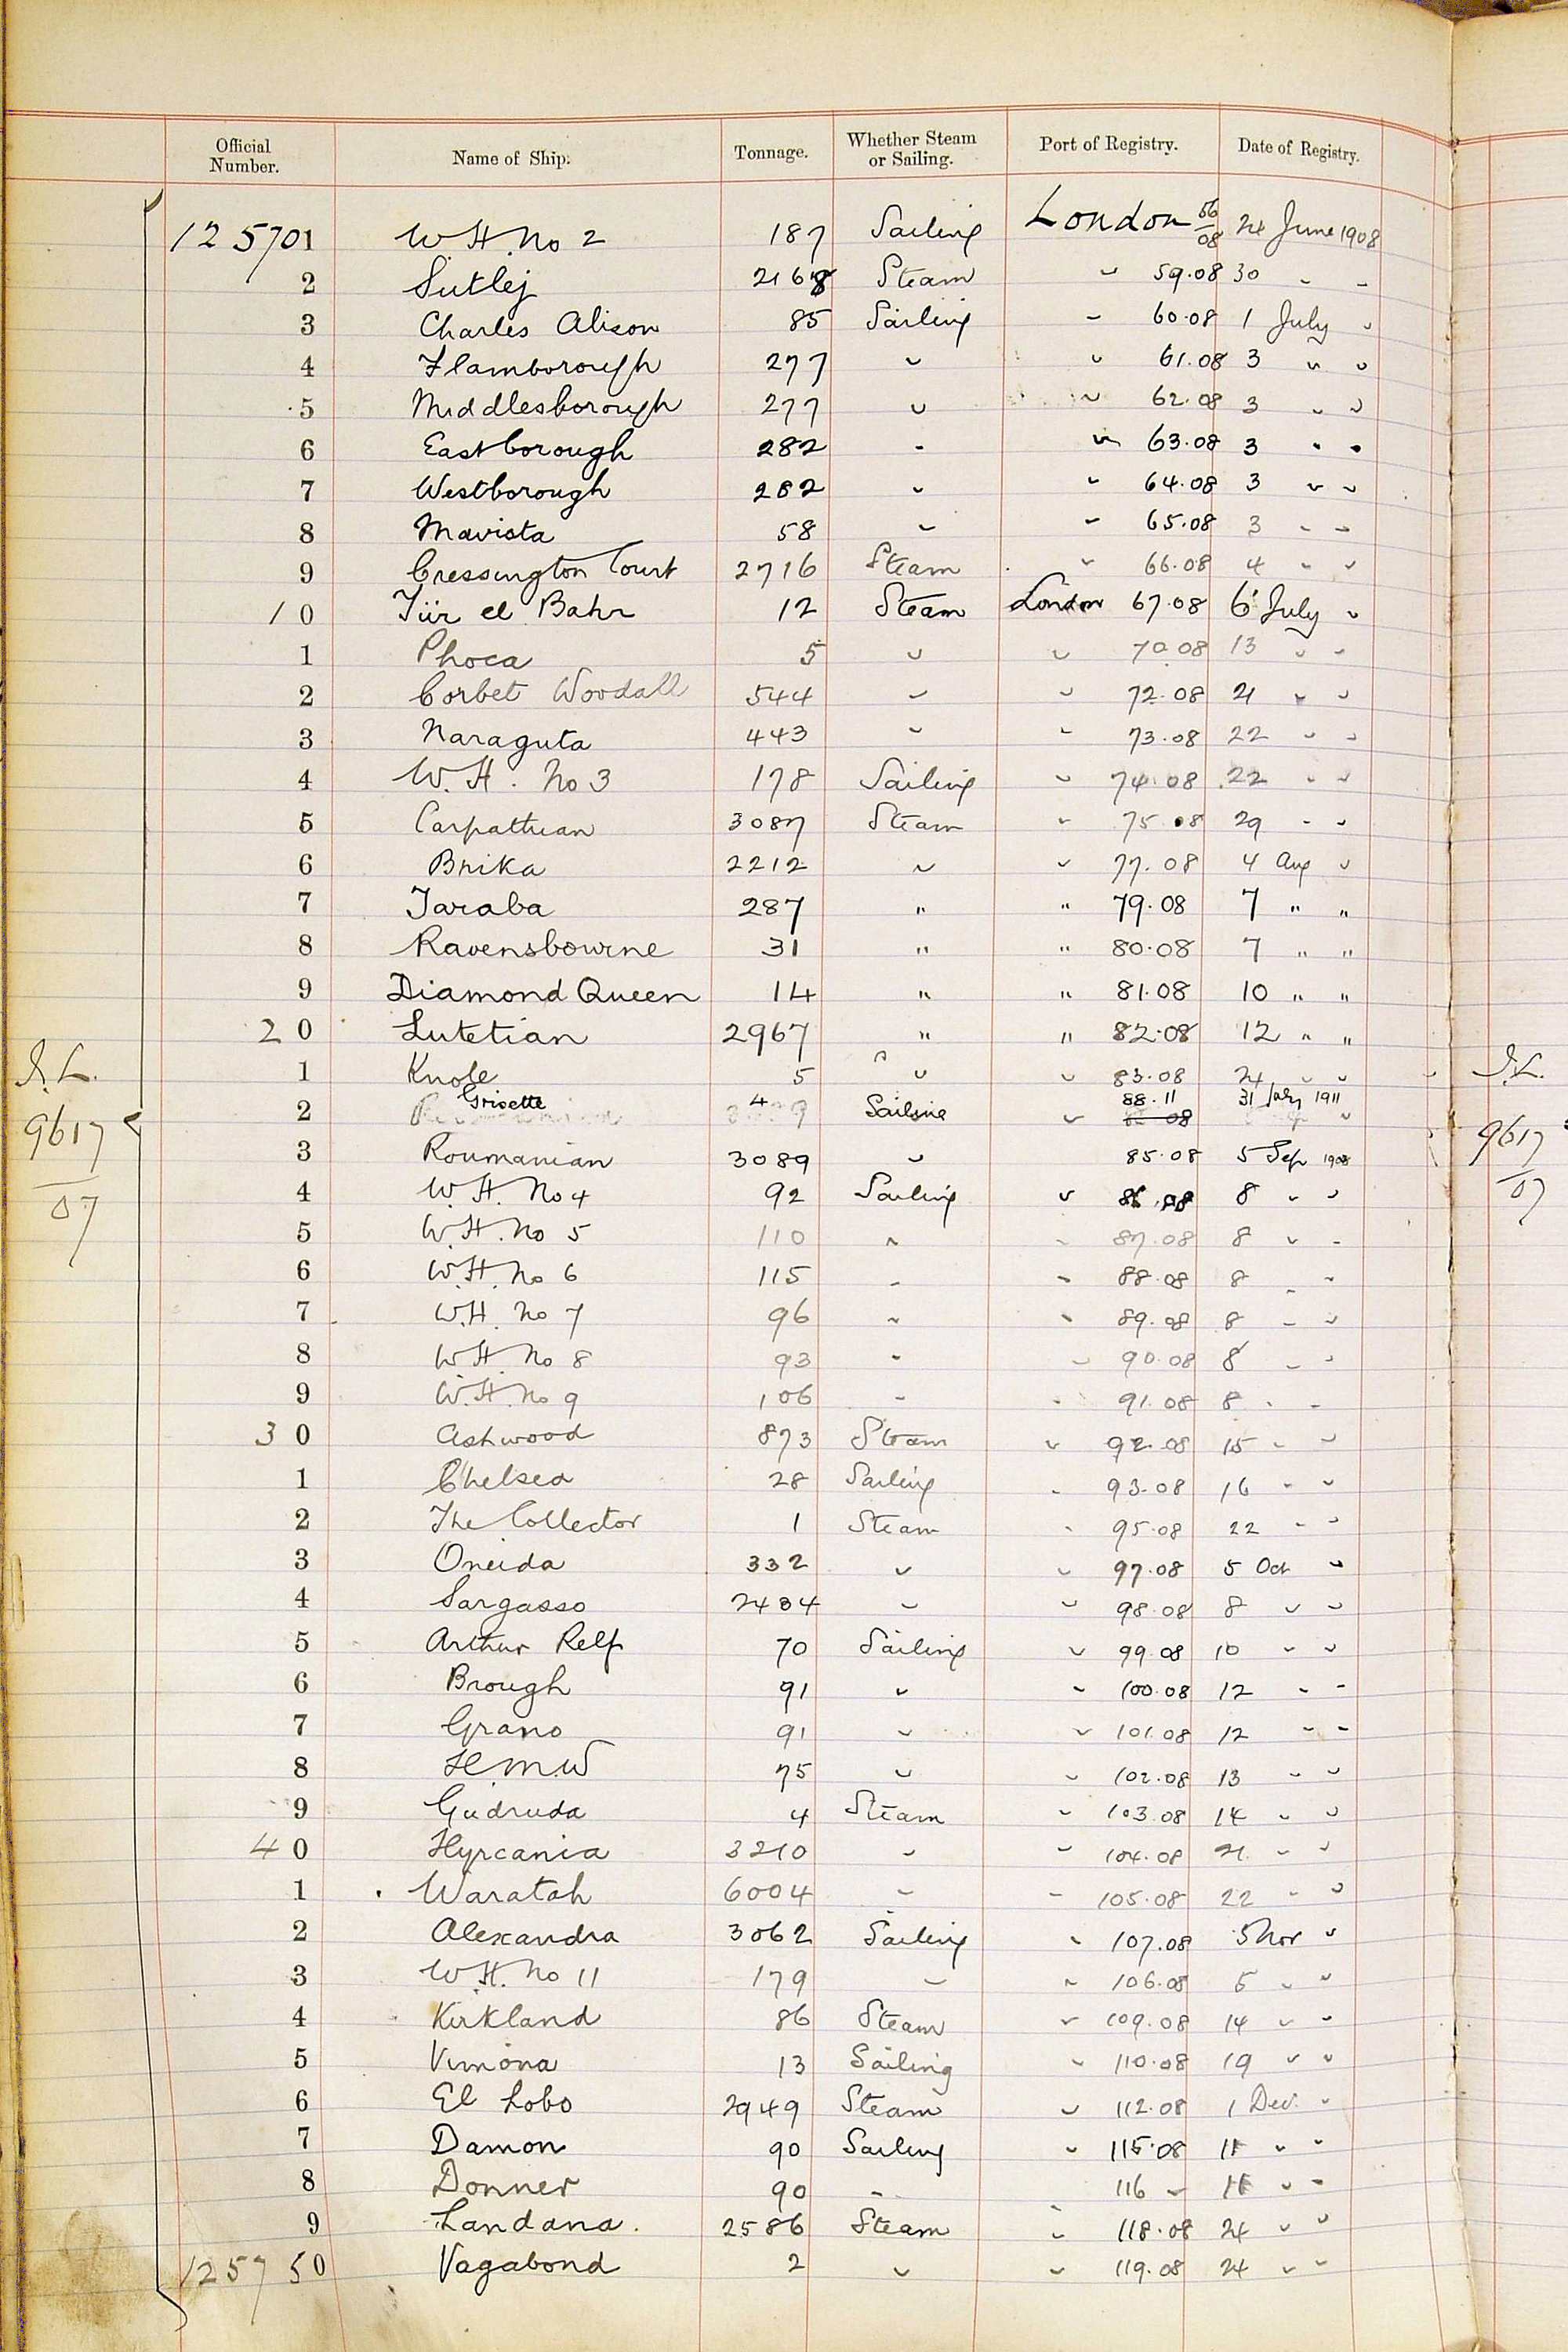 Official Number. Name of Ship. Tonnage. Whether Steam or Sailing. Port of Registry. Date of Registry.
125701 W.H. No 2 187 Sailing London 56/08 24 June 1908
2 Sutlej 2168 Steam " 59.08 30 " "
3 Charles Alison 85 Sailing " 60.08 1 July "
4 Flamborough 277 " " 61.08 3 " "
5 Middlesborough 277 " " 62.08 3 " "
6 Eastborough 282 " " 63.08 3 " "
7 Westborough 282 " " 64.08 3 " "
8 Mavista 58 " " 65.08 3 " "
9 Cressington Court 2716 Steam " 66.08 4 " "
10 Tür el Bahr 12 Steam London 67.08 6 July "
1 Phoca 5 " " 70.08 13 " "
2 Corbet Woodall 544 " " 72.08 21 " "
3 Naraguta 443 " " 73.08 22 " "
4 W.H. No 3 178 Sailing " 74.08 22 " "
5 Carpathian 3087 Steam " 75.08 29 " "
6 Brika 2212 " " 77.08 4 Aug "
7 Taraba 287 " " 79.08 7 " "
8 Ravensbourne 31 " " 80.08 7 " "
9 Diamond Queen 14 " " 81.08 10 " "
20 Lutetian 2967 " " 82.08 12 " "
I.L. 1 Knole 5 " " 83.08 24 " " I.L.
9617/07 2 Grisette 4 Sailing " 88.11 31 July 1911 9617/07
08
3 Roumanian 3089 " 85.08 5 Sep 1908
4 W.H. No 4 92 Sailing " 86.08 8 " "
5 W.H. No 5 110 " " 87.08 8 " "
6 W.H. No 6 115 " " 88.08 8 " "
7 W.H. No 7 96 " " 89.08 8 " "
8 W.H. No 8 93 " " 90.08 8 " "
9 W.H. No 9 106 " " 91.08 8 " "
30 Ashwood 873 Steam " 92.08 15 " "
1 Chelsea 28 Sailing " 93.08 16 " "
2 The Collector 1 Steam " 95.08 22 " "
3 Oneida 332 " " 97.08 5 Oct "
4 Sargasso 2484 " " 98.08 8 " "
5 Arthur Relf 70 Sailing " 99.08 10 " "
6 Brough 91 " " 100.08 12 " "
7 Grano 91 " " 101.08 12 " "
8 H.M.W 75 " " 102.08 13 " "
9 Gudruda 4 Steam " 103.08 14 " "
40 Hyrcania 3210 " " 104.08 21 " "
1 Waratah 6004 " " 105.08 22 " "
2 Alexandra 3062 Sailing " 107.08 5 Nov "
3 W.H. No 11 179 " " 106.08 5 " "
4 Kirkland 86 Steam " 109.08 14 " "
5 Vimona 13 Sailing " 110.08 19 " "
6 El Lobo 2949 Steam " 112.08 1 Dec. "
7 Damon 90 Sailing " 115.08 11 " "
8 Donner 90 " 116 " 11 " "
9 Landana. 2586 Steam " 118.08 24 " "
125750 Vagabond 2 " " 119.08 24 " "